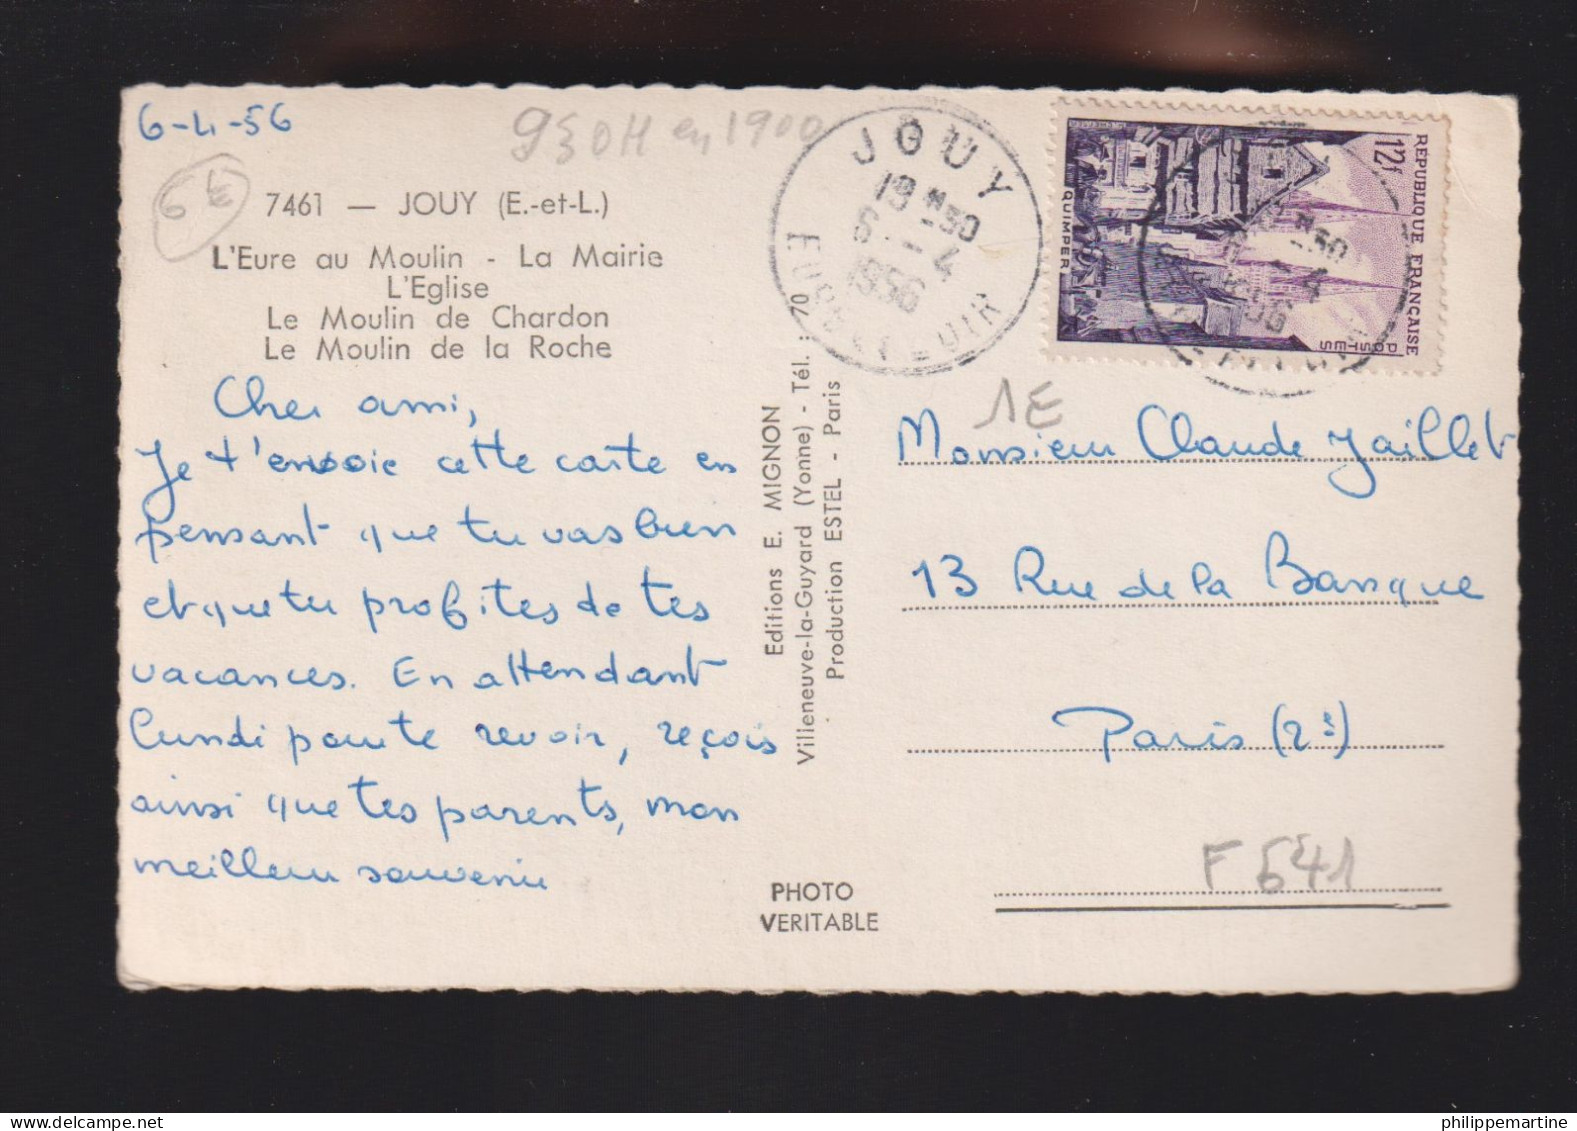 6-4-56
950H en 1900
6 €
7461 — JOUY (E.-et-L.)
L'Eure au Moulin - La Mairie
L'Eglise
Le Moulin de Chardon
Le Moulin de la Roche
Cher ami,
Je t'envoie cette carte en
pensant que tu vas bien
et que tu profites de tes
vacances. En attendant
lundi pour te revoir, reçois
ainsi que tes parents, mon
meilleur souvenir
Editions E. MIGNON
Villeneuve-la-Guyard (Yonne) - Tél. : 70
Production ESTEL - Paris
PHOTO
VERITABLE
JOUY
18 H 30
6 - 4
1956
EURE ET LOIR
RÉPUBLIQUE FRANÇAISE
POSTES
12f
QUIMPER
1E
Monsieur Claude Jaillet
13 Rue de la Banque
Paris (2e)
F 641
philippemartine